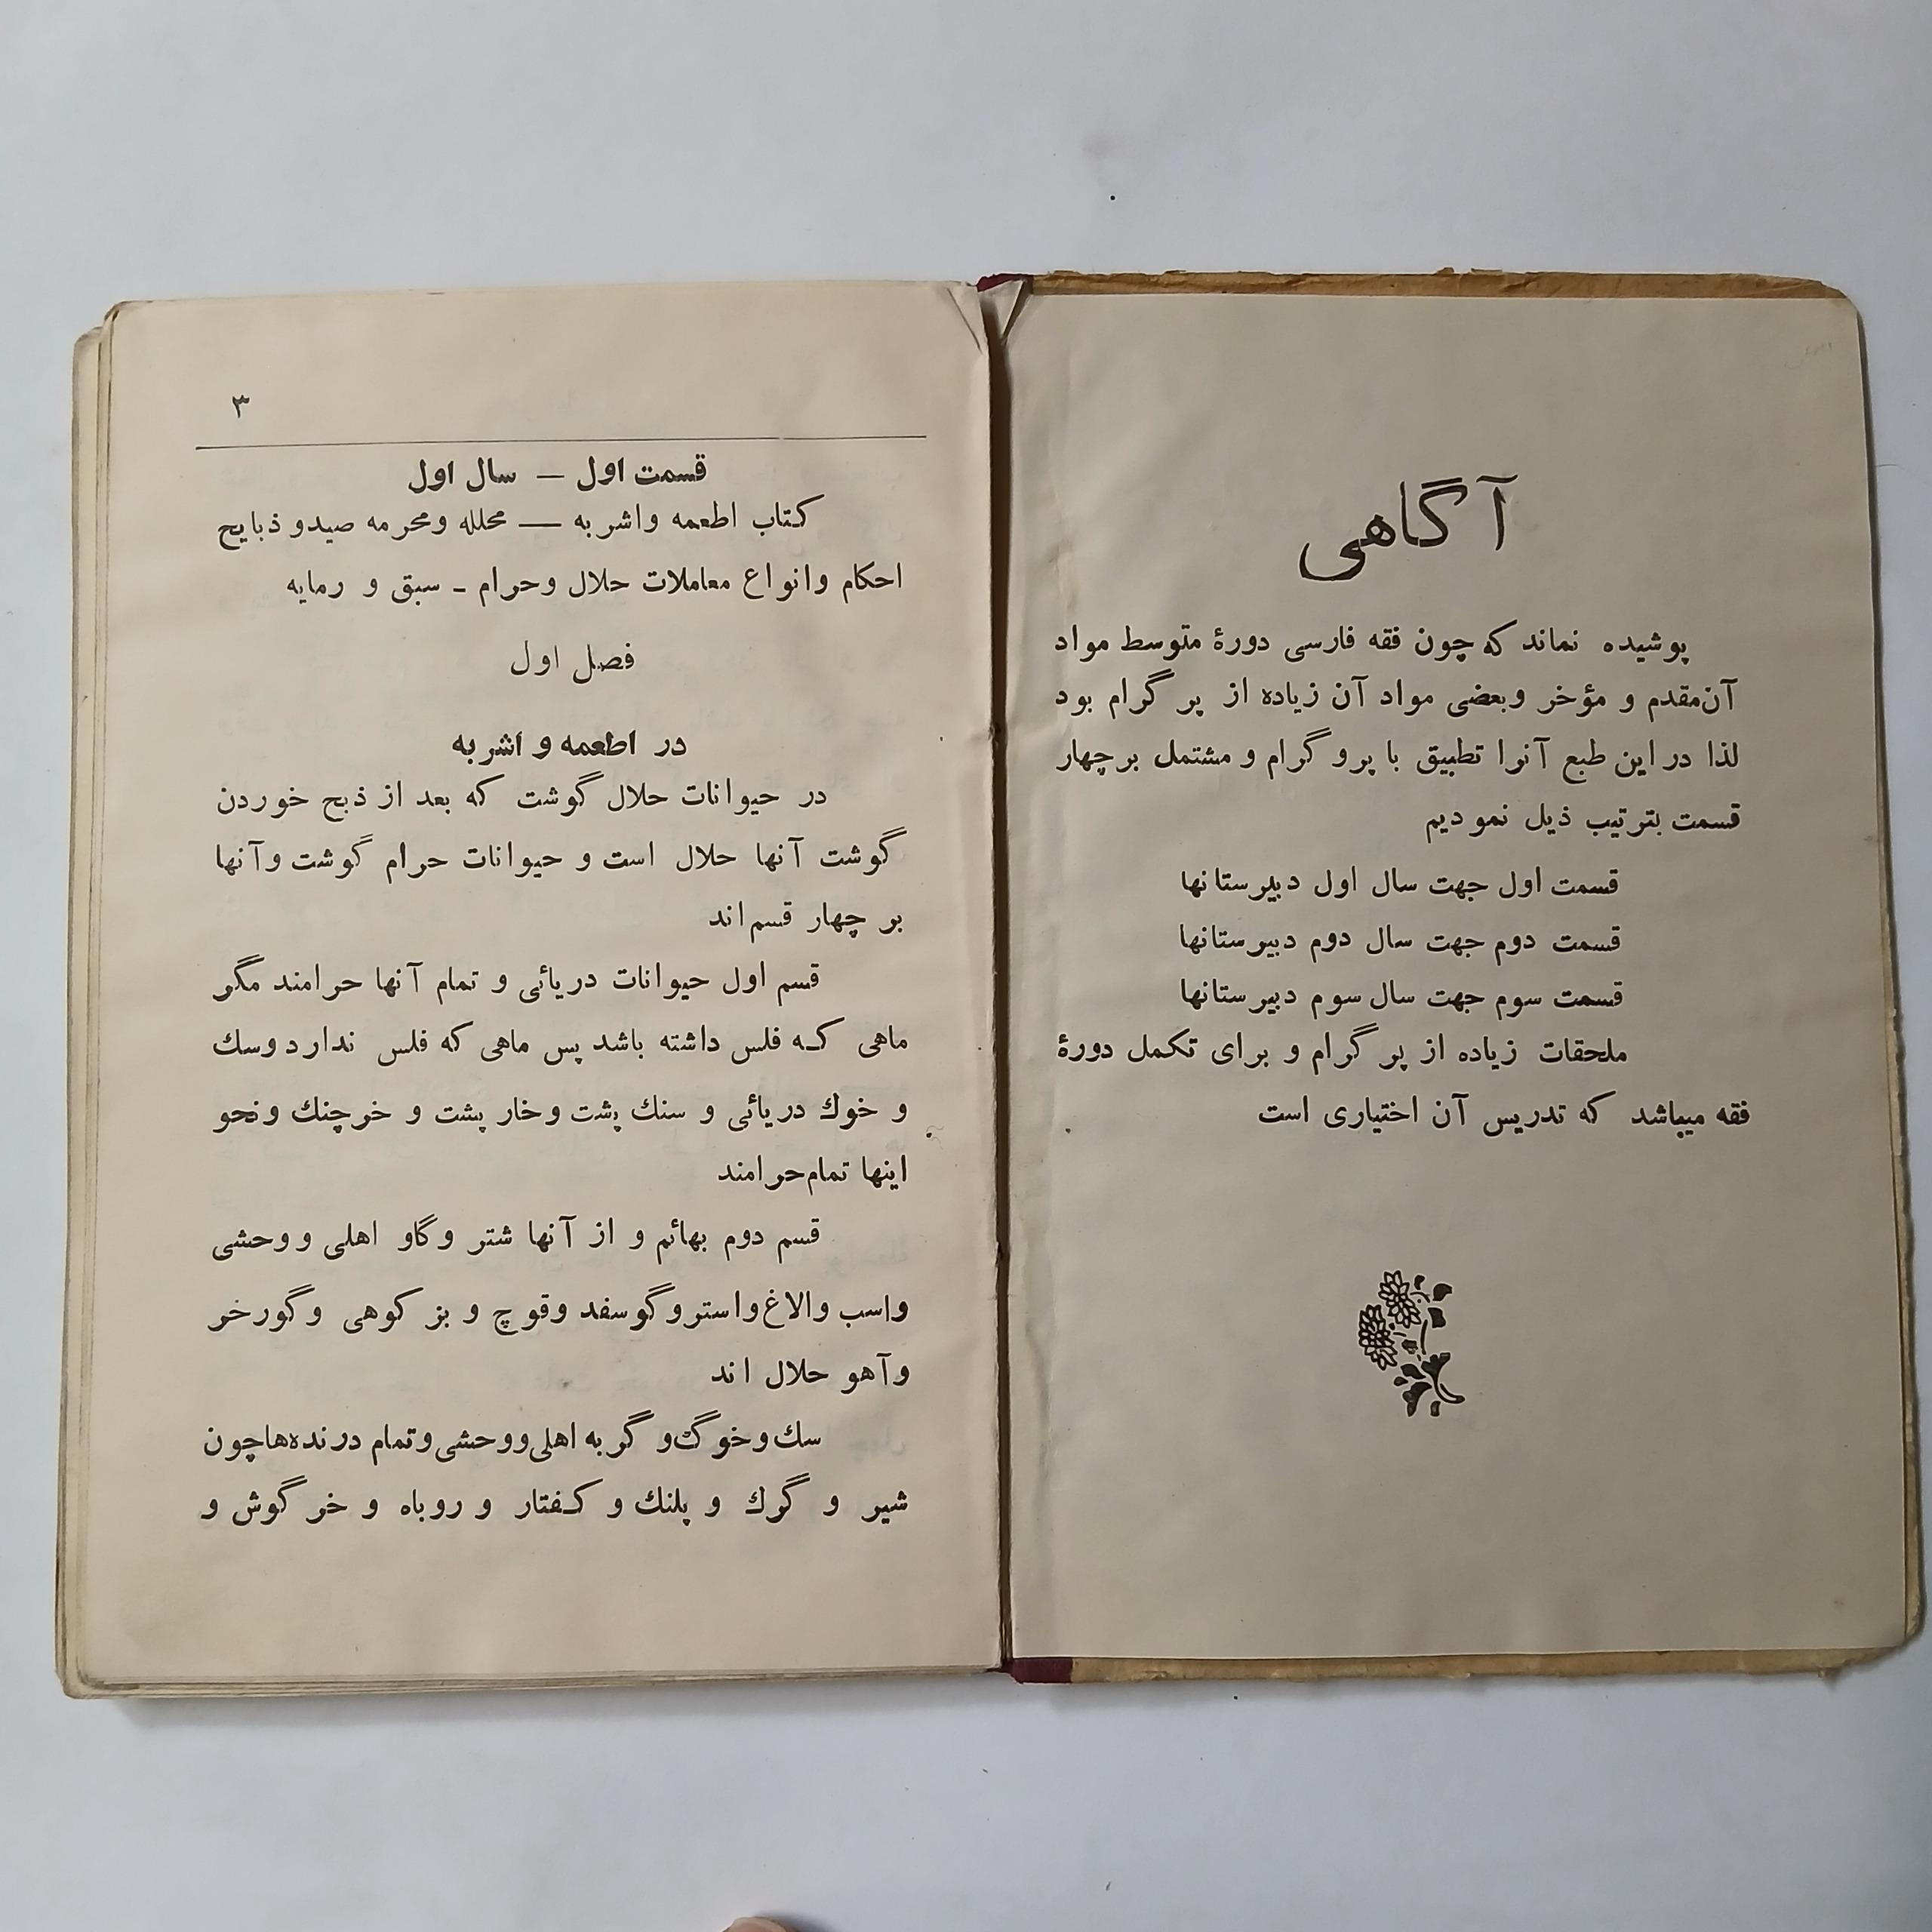 آگاهی
پوشیده نماند که چون فقه فارسی دورهٔ متوسط مواد
آن مقدم و مؤخر وبعضی مواد آن زیاده از پر گرام بود
لذا در این طبع آنرا تطبیق با پرو گرام و مشتمل بر چهار
قسمت بترتیب ذیل نمودیم
قسمت اول جهت سال اول دبیرستانها
قسمت دوم جهت سال دوم دبیرستانها
قسمت سوم جهت سال سوم دبیرستانها
ملحقات زیاده از پر گرام و برای تکمل دورهٔ
فقه میباشد که تدریس آن اختیاری است
۳
قسمت اول — سال اول
کتاب اطعمه واشربه — محلله ومحرمه صیدو ذبایح
احکام وانواع معاملات حلال وحرام - سبق و رمایه
فصل اول
در اطعمه و اشربه
در حیوانات حلال گوشت که بعد از ذبح خوردن
گوشت آنها حلال است و حیوانات حرام گوشت وآنها
بر چهار قسم اند
قسم اول حیوانات دریائی و تمام آنها حرامند مگر
ماهی که فلس داشته باشد پس ماهی که فلس ندارد وسك
و خوك دریائی و سنك پشت وخار پشت و خرچنك ونحو
اینها تمام حرامند
قسم دوم بهائم و از آنها شتر وگاو اهلی و وحشی
واسب والاغ واستر وگوسفد وقوچ و بز کوهی وگورخر
وآهو حلال اند
سك وخوگ و گربه اهلی ووحشی وتمام درنده‌ها چون
شیر و گرك و پلنك و کفتار و روباه و خر گوش و